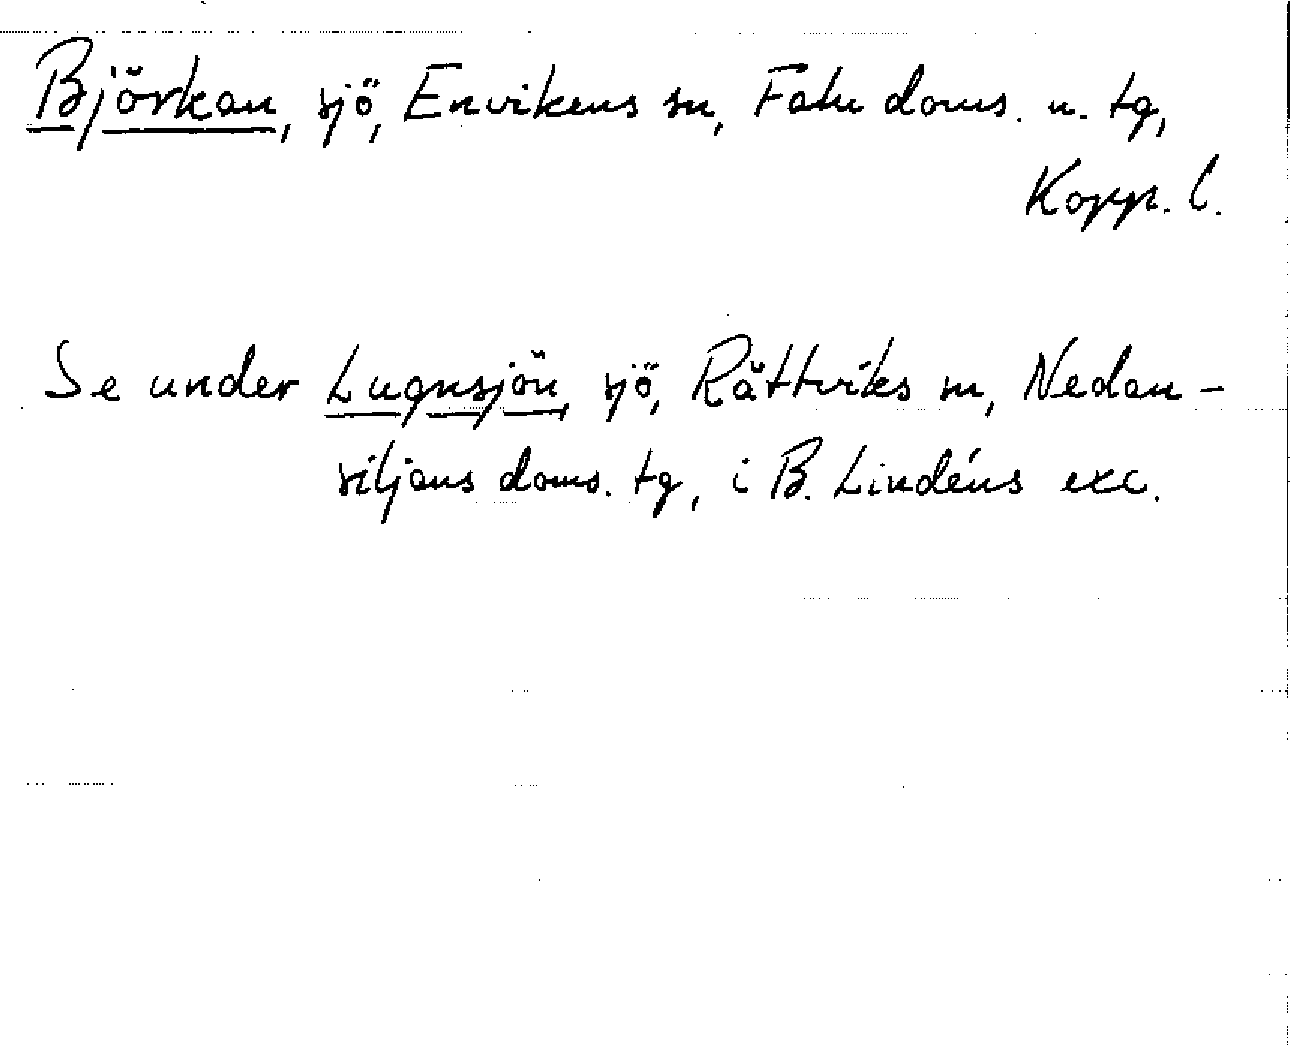 Björkan, sjö, Envikens sn, Falu doms. n. tg,
Kopp. l.
Se under Lugnsjön, sjö, Rättviks sn, Nedan-
siljans doms. tg, i B. Lindéns exc.